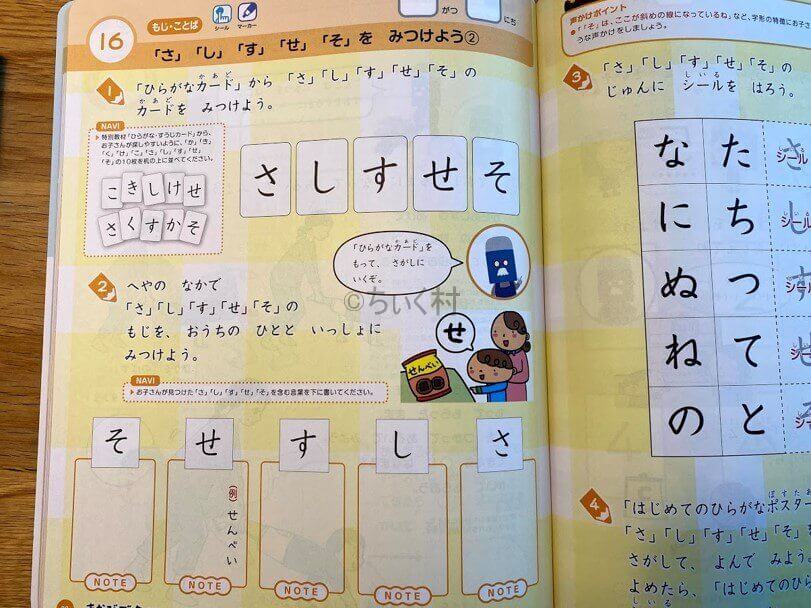 16
もじ・ことば
シール
マーカー
がつ
にち
「さ」「し」「す」「せ」「そ」を みつけよう②
1
「ひらがなカード」から 「さ」「し」「す」「せ」「そ」の
カードを みつけよう。
NAVI
特別教材「ひらがな・すうじカード」から、
お子さんが探しやすいように、「か」「き」
「く」「け」「こ」「さ」「し」「す」「せ」
「そ」の10枚を机の上に並べてください。
こ き し け せ
さ く す か そ
さ し す せ そ
「ひらがなカード」を
もって、 さがしに
いくぞ。
2
へやの なかで
「さ」「し」「す」「せ」「そ」の
もじを、 おうちの ひとと いっしょに
みつけよう。
せ
せんべい
NAVI
お子さんが見つけた「さ」「し」「す」「せ」「そ」を含む言葉を下に書いてください。
そ せ す し さ
(例) せんべい
NOTE NOTE NOTE NOTE NOTE
声かけポイント
「「そ」は、ここが斜めの線になっているね」など、字形の特徴にお子さ
うな声かけをしましょう。
3
「さ」「し」「す」「せ」「そ」の
じゅんに シールを はろう。
な た さ シール
に ち し シール
ぬ つ す シール
ね て せ シ
の と
4
「はじめてのひらがなポスター
「さ」「し」「す」「せ」「そ」を
さがして、 よんで みよう。
よめたら、「はじめてのひら
©ちいく村